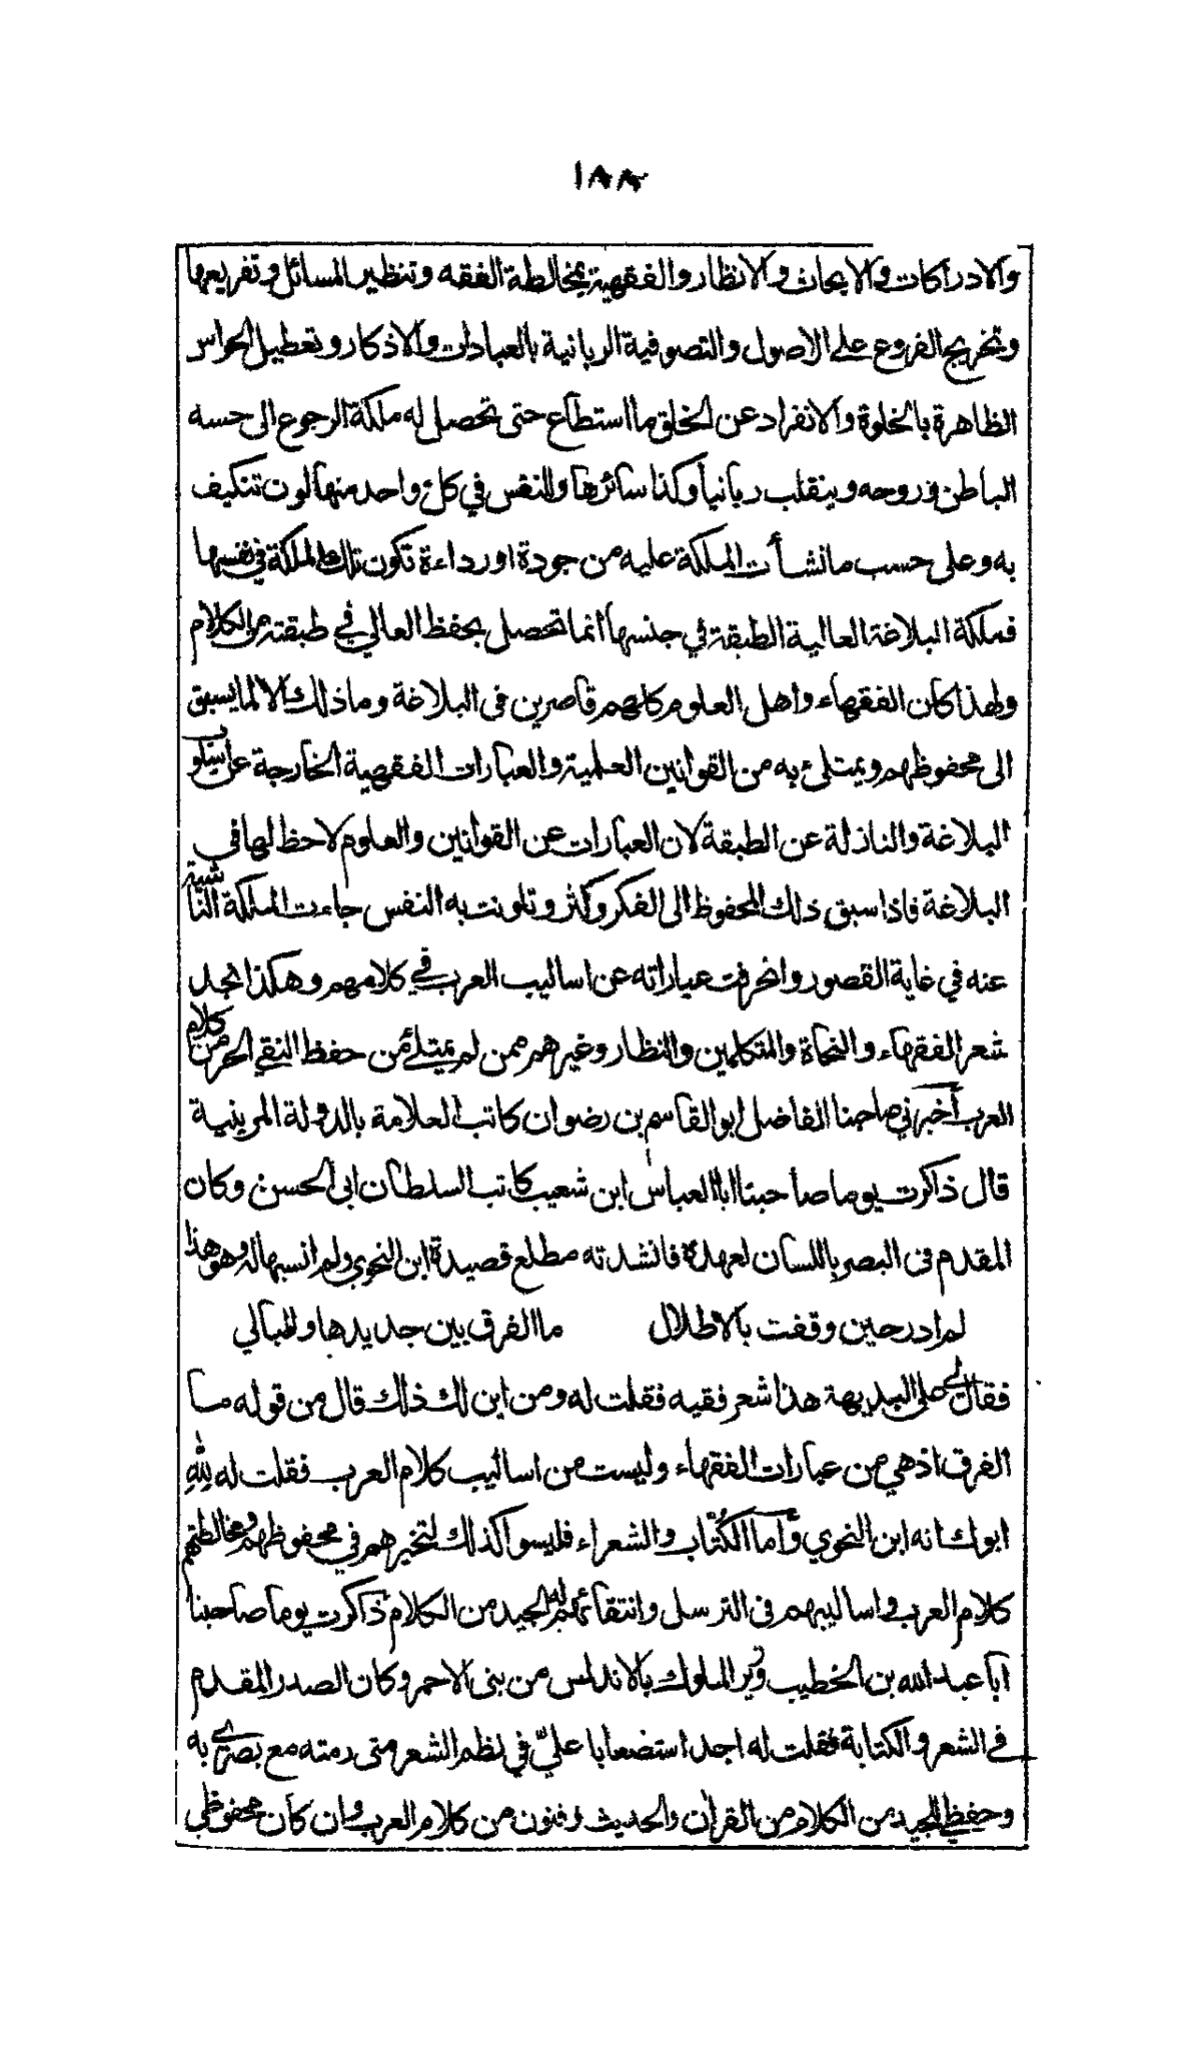 ١٨٨
والادراكات والابحاث والانظار والفقهية بمخالطة الفقه وتنظير المسائل وتفريعها
وتخريج الفروع على الاصول والتصوفية الربانية بالعبادات والاذكار وتعطيل الحواس
الظاهرة بالخلوة والانفراد عن الخلق ما استطاع حتى تحصل له ملكة الرجوع الى حسه
الباطن وروحه وينقلب ربانيا وكذا سائرها وللنفس في كل واحد منها لون تتكيف
به وعلى حسب ما نشأت الملكة عليه من جودة او رداءة تكون تلك الملكة في نفسها
فملكة البلاغة العالية الطبقة في جنسها انما تحصل بحفظ العالي في طبقته من الكلام
ولهذا كان الفقهاء واهل العلوم كلهم قاصرين في البلاغة وما ذلك الا لما يسبق
الى محفوظهم ويمتلىء به من القوانين العلمية والعبارات الفقهية الخارجة عن اسلوب
البلاغة والنازلة عن الطبقة لان العبارات عن القوانين والعلوم لاحظ لها في
البلاغة فاذا سبق ذلك المحفوظ الى الفكر وكثر وتلونت به النفس جاءت الملكة الناشية
عنه في غاية القصور وانحرفت عباراته عن اساليب العرب في كلامهم وهكذا نجد
شعر الفقهاء والنحاة والمتكلمين والنظار وغيرهم ممن لم يمتلئ من حفظ النقي الحر من كلام
العرب أخبرني صاحبنا الفاضل ابو القاسم بن رضوان كاتب العلامة بالدولة المرينية
قال ذاكرت يوما صاحبنا ابا العباس ابن شعيب كاتب السلطان ابى الحسن وكان
المقدم في البصر باللسان لعهده فانشدته مطلع قصيدة ابن النحوي ولم انسبها له وهو هذا
لم ادر حين وقفت بالاطلال ما الفرق بين جديدها والبالي
فقال لي على البديهة هذا شعر فقيه فقلت له ومن اين لك ذلك قال من قوله ما
الفرق اذ هي من عبارات الفقهاء وليست من اساليب كلام العرب فقلت له لله
ابوك انه ابن النحوي وأما الكُتّاب والشعراء فليسوا كذلك لتخيرهم في محفوظهم ومخالطتهم
كلام العرب واساليبهم في الترسل وانتقائهم له الجيد من الكلام ذاكرت يوما صاحبنا
ابا عبد الله بن الخطيب وزير الملوك بالاندلس من بنى الاحمر وكان الصدر المقدم
في الشعر والكتابة فقلت له اجد استصعابا عليّ في نظم الشعر متى رمته مع بصري به
وحفظي للجيد من الكلام من القرآن والحديث وفنون من كلام العرب وان كان محفوظي